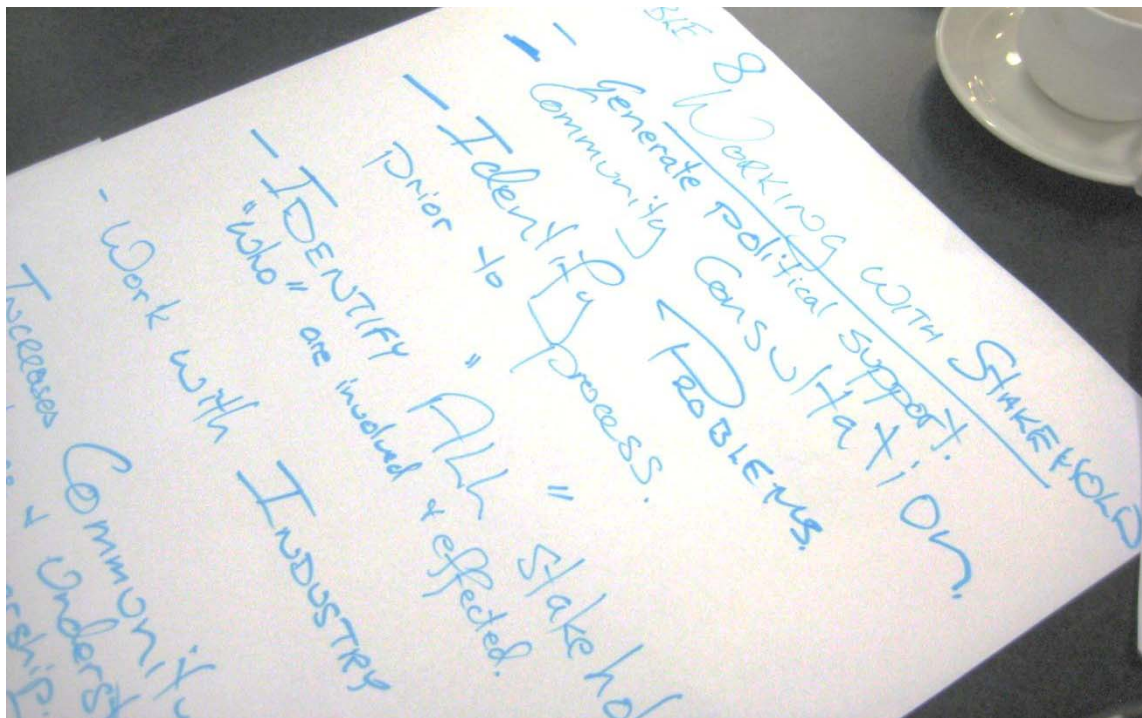 BLE 8 WORKING WITH STAKEHOLD
- Generate political support.
- Community Consultation.
- Identify PROBLEMS.
prior to process.
- IDENTIFY "ALL" stakehol
"who" are involved & effected.
- Work with INDUSTRY
Increases Community
& Underst
ership.